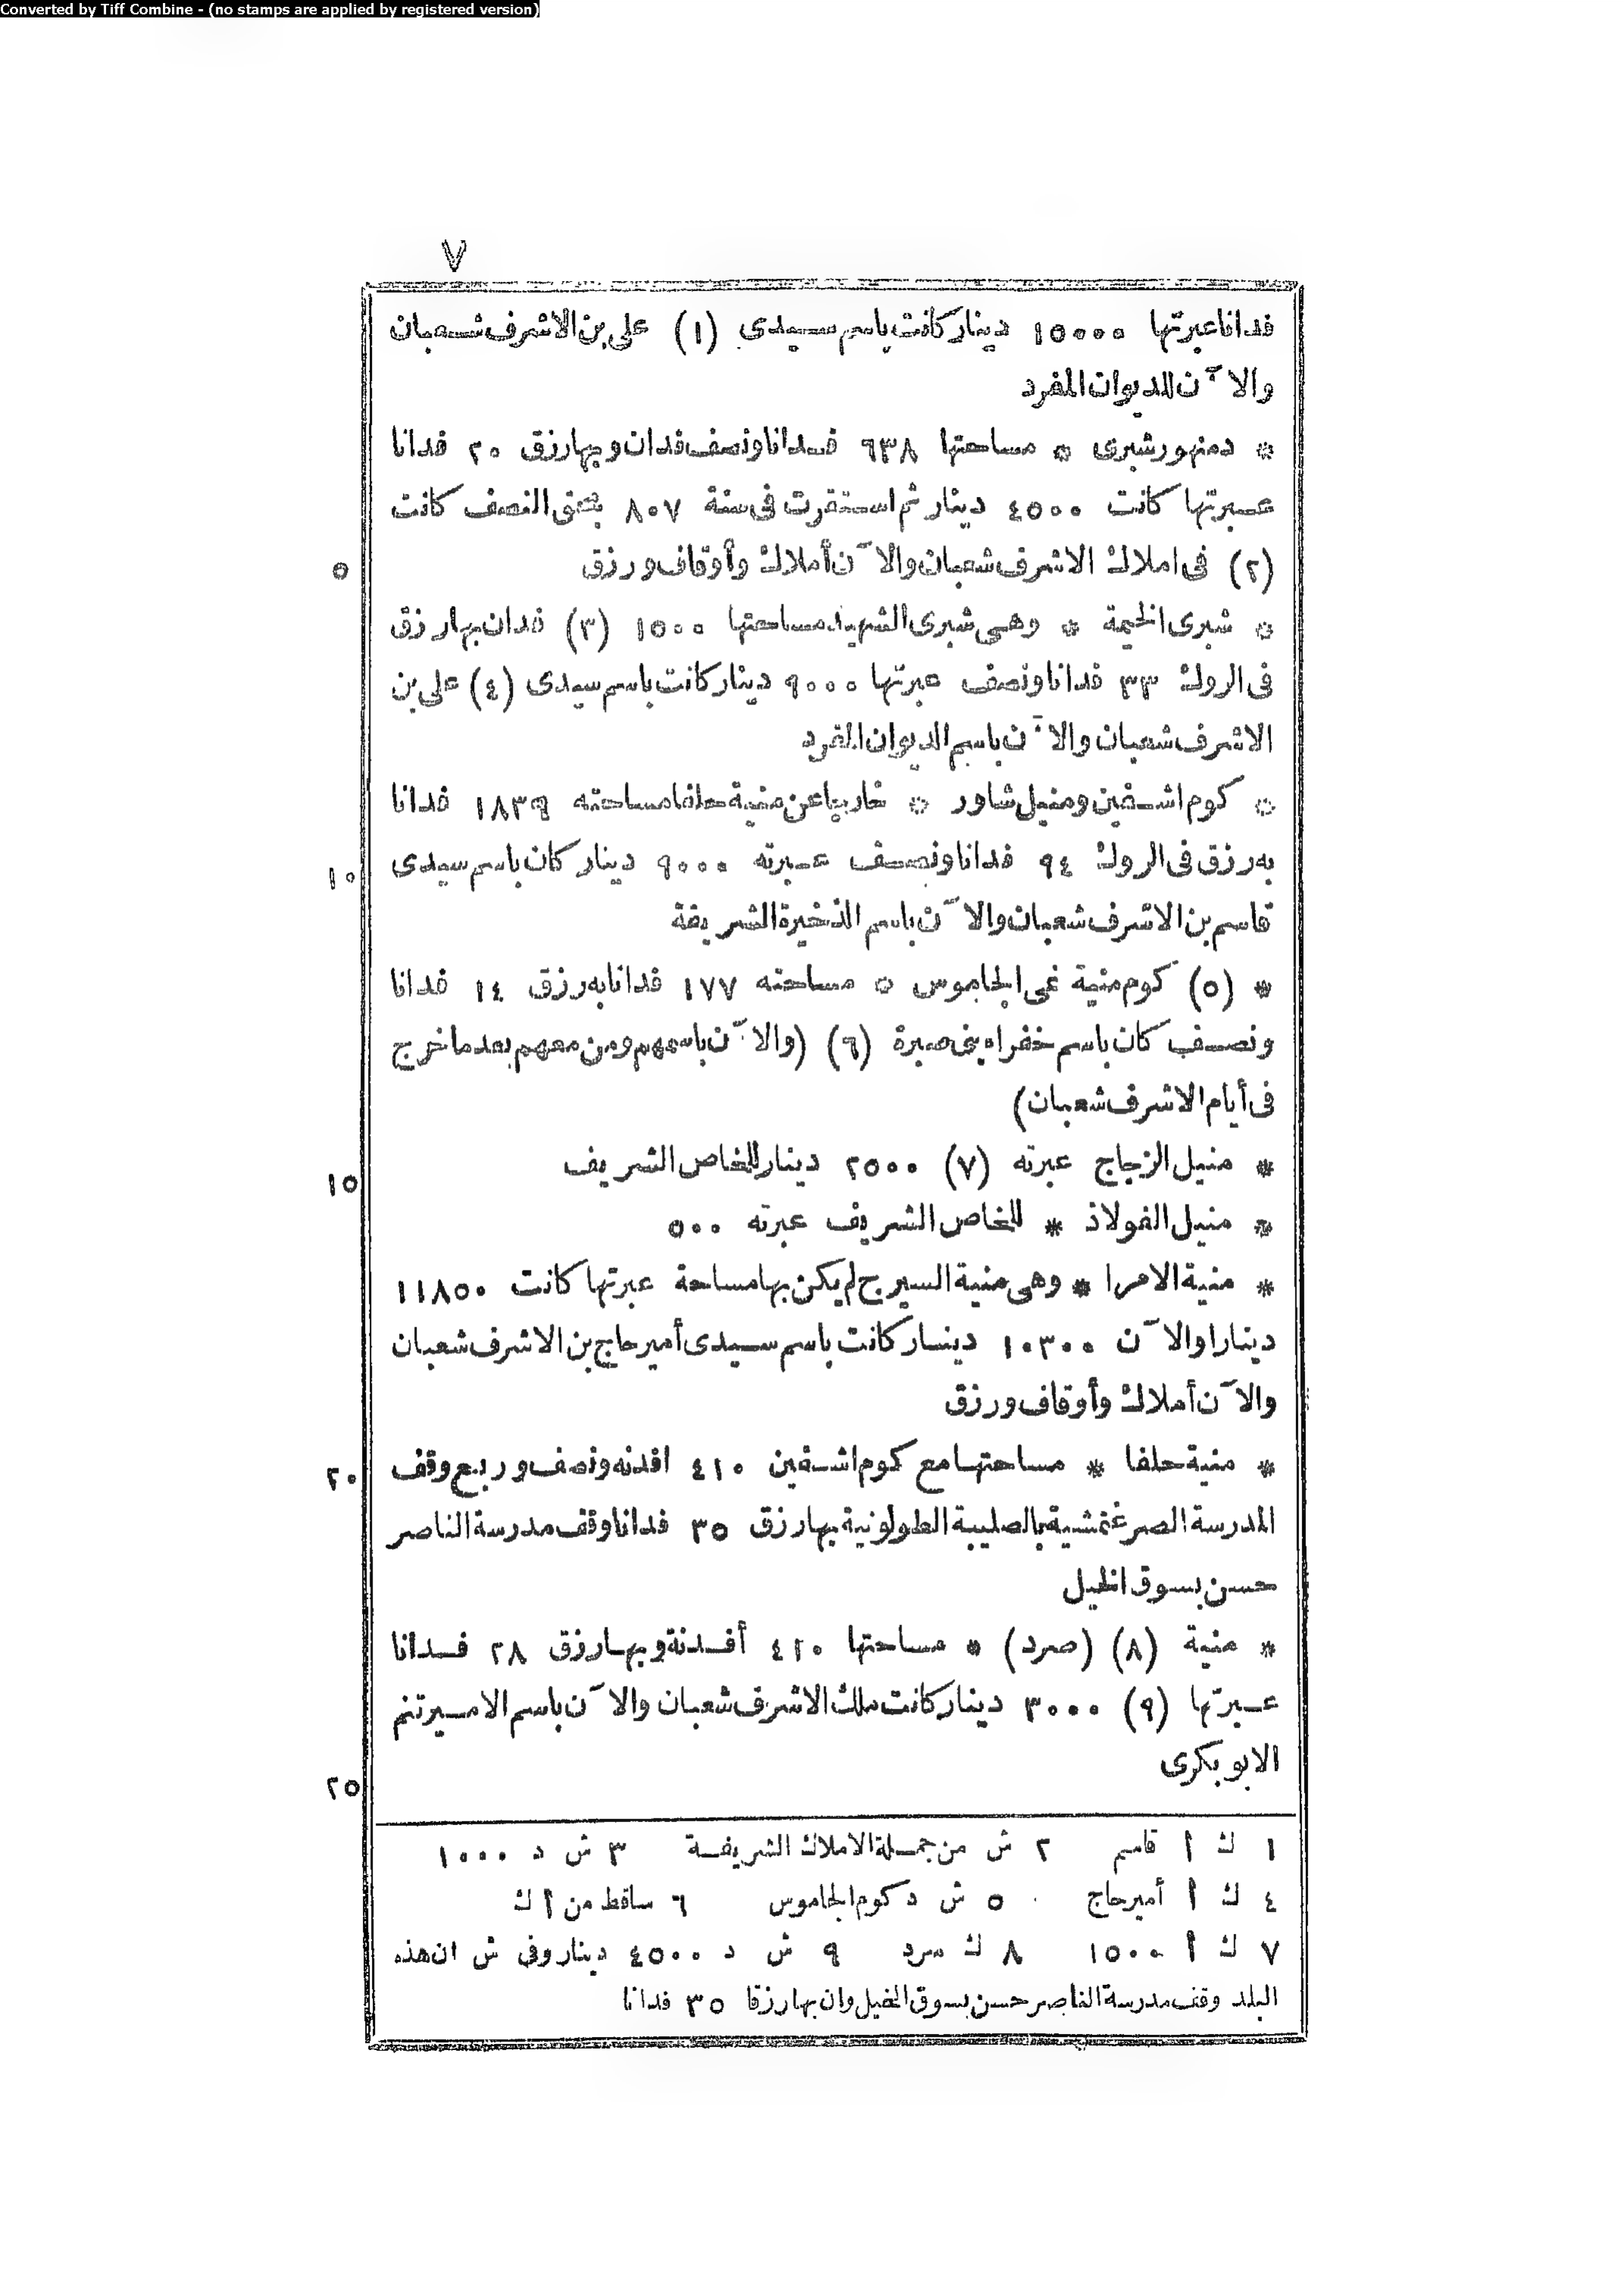 Converted by Tiff Combine - (no stamps are applied by registered version)
٧
فدانا عبرتها ١٥٠٠٠ دينار كانت باسم سيدى (١) على بن الاشرف شعبان
والآن للديوان المفرد
* دمنهور شبرى * مساحتها ٦٣٨ فدانا ونصف فدان وبهارزق ٢٠ فدانا
عبرتها كانت ٤٥٠٠ دينار ثم استقرت فى سنة ٨٠٧ بحق النصف كانت
(٢) فى املاك الاشرف شعبان والآن أملاك وأوقاف ورزق
٥
* شبرى الخيمة * وهى شبرى الشهيد مساحتها ١٥٠٠ (٣) فدان بهارزق
فى الروك ٣٣ فدانا ونصف عبرتها ٩٠٠٠ دينار كانت باسم سيدى (٤) على بن
الاشرف شعبان والآن باسم الديوان المفرد
* كوم اشفين ومنيل شاور * خارجا عن منية حلفا مساحته ١٨٣٩ فدانا
به رزق فى الروك ٩٤ فدانا ونصف عبرته ٩٠٠٠ دينار كان باسم سيدى
١٠
قاسم بن الاشرف شعبان والآن باسم الذخيرة الشريفة
* (٥) كوم منية غمى الجاموس * مساحته ١٧٧ فدانا به رزق ١٤ فدانا
ونصف كان باسم خفراء (٦) (والآن باسمهم ومن معهم بعد ما خرج
فى أيام الاشرف شعبان)
* منيل الزجاج عبرته (٧) ٢٥٠٠ دينار للخاص الشريف
١٥
* منيل الفولاذ * للخاص الشريف عبرته ٥٠٠
* منية الامرا * وهى منية السيرج لم يكن بها مساحة عبرتها كانت ١١٨٥٠
دينارا والآن ١٠٣٠٠ دينار كانت باسم سيدى أمير حاج بن الاشرف شعبان
والآن أملاك وأوقاف ورزق
* منية حلفا * مساحتها مع كوم اشفين ٤١٠ افدنه ونصف وربع وقف
٢٠
المدرسة الصرغتمشية بالصليبة الطولونية بهارزق ٣٥ فدانا وقف مدرسة الناصر
حسن بسوق الخيل
* منية (٨) (صرد) * مساحتها ٤١٠ أفدنة وبهارزق ٢٨ فدانا
عبرتها (٩) ٣٠٠٠ دينار كانت ملك الاشرف شعبان والآن باسم الامير تنم
الابوبكرى
٢٥
١ ك أ قاسم ٢ ش من جملة الاملاك الشريفة ٣ ش د ١٠٠٠
٤ ك أ أمير حاج ٥ ش د كوم الجاموس ٦ ساقط من أ ك
٧ ك أ ١٥٠٠ ٨ ك سرد ٩ ش د ٤٥٠٠ دينار وفى ش ان هذه
البلد وقف مدرسة الناصر حسن بسوق الخيل وان بها رزقا ٣٥ فدانا